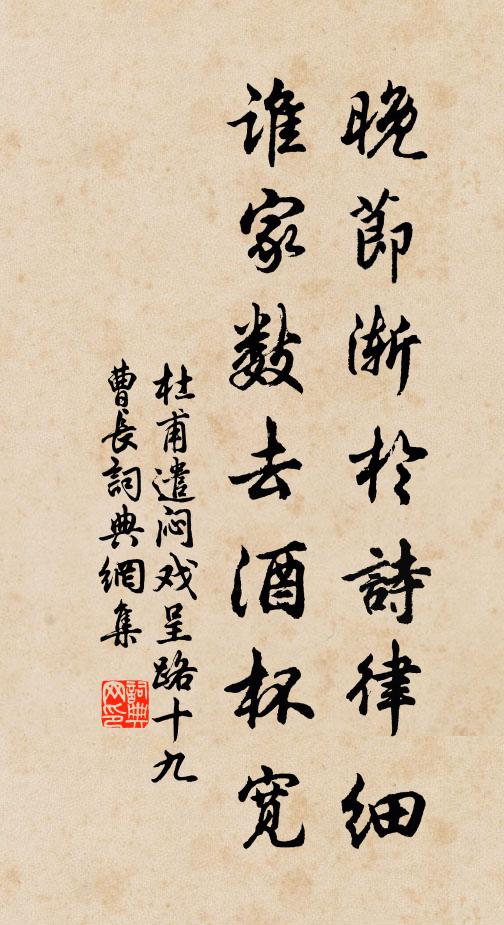 晚節漸於詩律細
谁家數去酒杯寬
杜甫遣闷戏呈路十九
曹长詞典網集
詞典网印